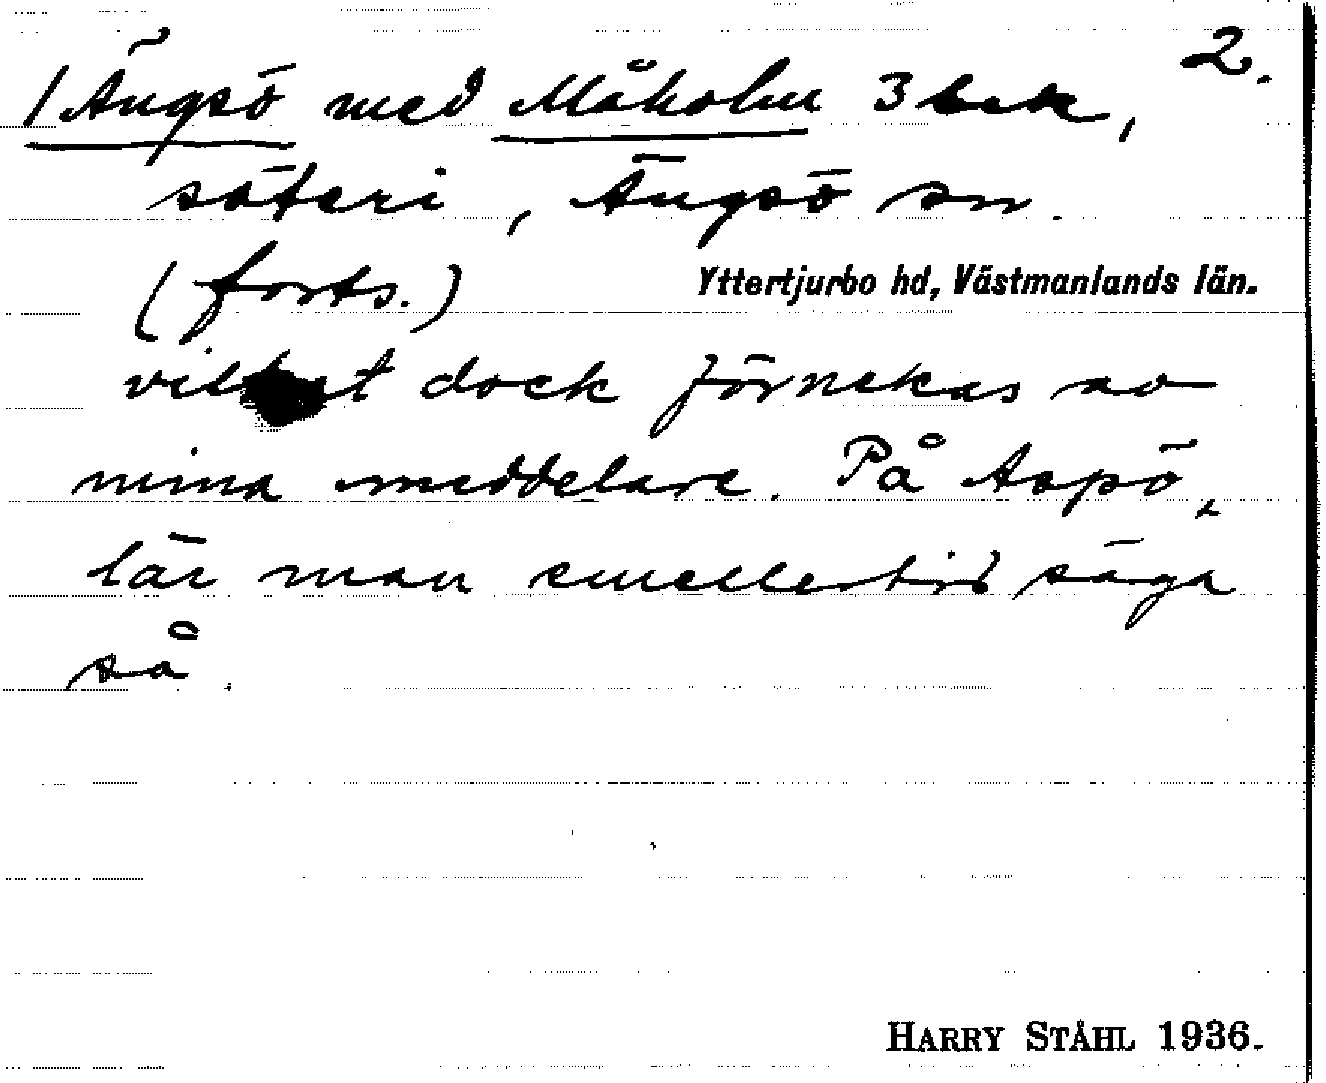 2.
/Ängsö med Måholm 3 bek,
säteri, Ängsö sn.
(forts.)
Yttertjurbo hd, Västmanlands län.
vilket dock förnekas av
mina meddelare. På Aspö,
lär man emellertid säga
så.
HARRY STÅHL 1936.